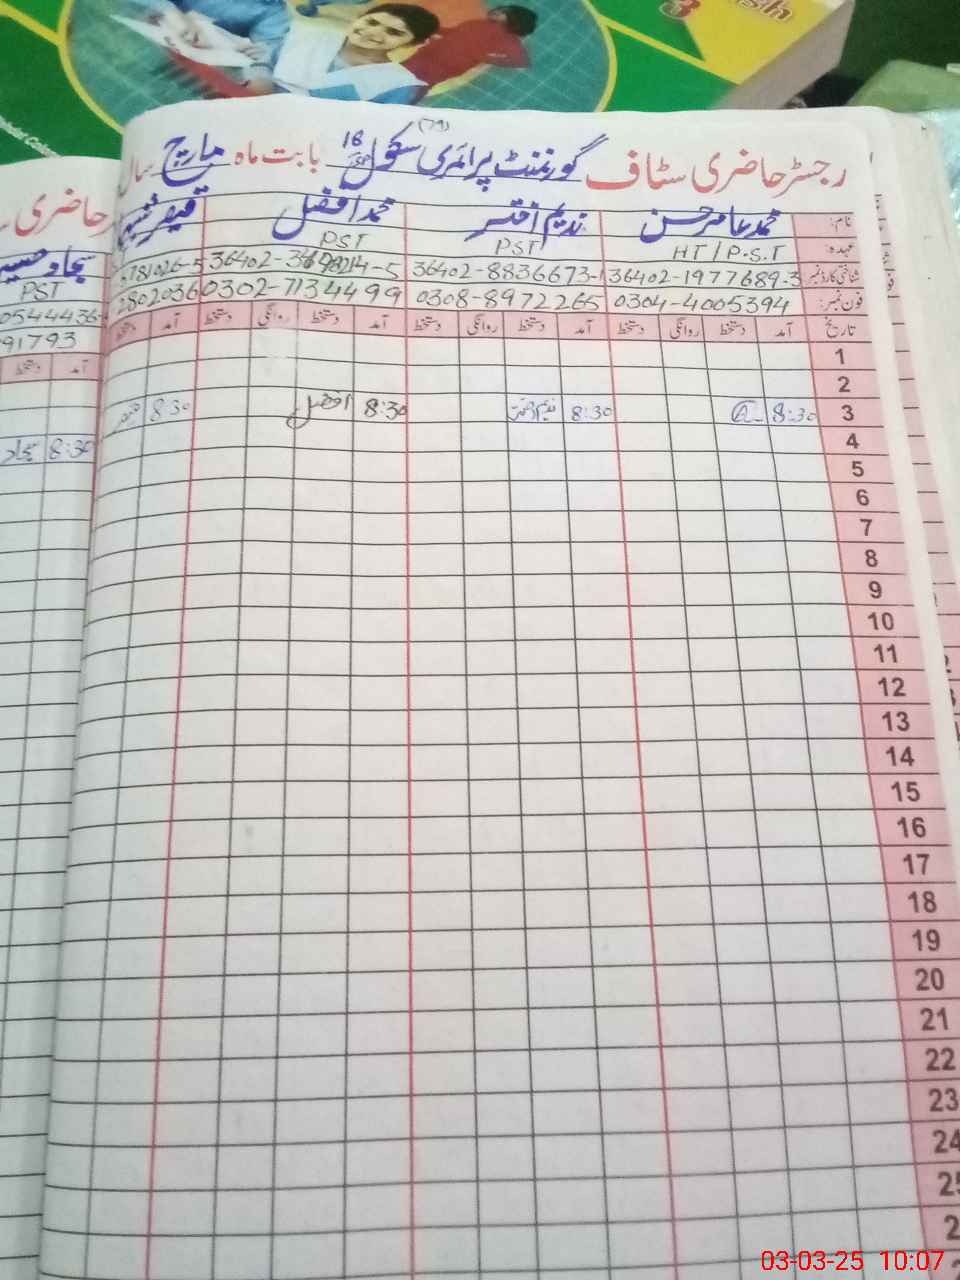 رجسٹر حاضری سٹاف گورنمنٹ پرائمری سکول 18 بابت ماہ مارچ سال
(79)
نام: محمد عامر حسن ندیم اختر محمد افضل قیصر
عہدہ: HT/P.S.T PST PST
شناختی کارڈ نمبر 36402-1977689-3 36402-8836673- 36402- 781026-5
فون نمبر: 0304-4005394 0308-8972265 0302-7134499 2802036
تاریخ آمد دستخط روانگی دستخط آمد دستخط روانگی دستخط آمد دستخط روانگی دستخط آمد دستخط
1
2
3 8:30 8:30 ندیم اختر 8:30 افضل 8:30
4
5
6
7
8
9
10
11
12
13
14
15
16
17
18
19
20
21
22
23
24
حاضری
سجاد حسین
PST
0544436
91793
آمد دستخط
8:30 سجاد
03-03-25 10:07